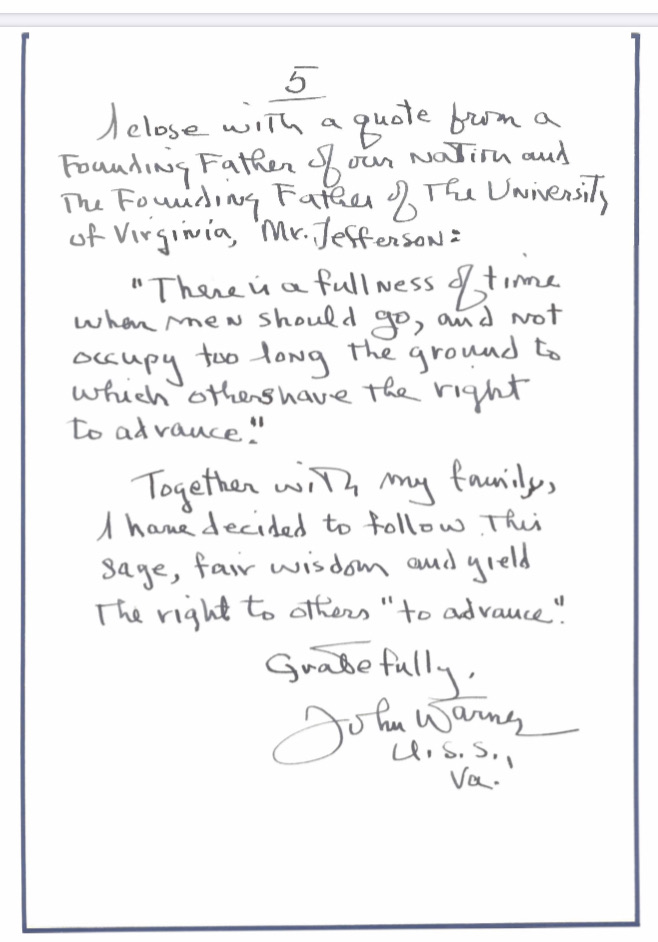 5
I close with a quote from a
Founding Father of our Nation and
The Founding Father of The University
of Virginia, Mr. Jefferson:
"There is a fullness of time
when men should go, and not
occupy too long the ground to
which others have the right
to advance."
Together with my family,
I have decided to follow This
sage, fair wisdom and yield
The right to others "to advance".
Gratefully,
John Warner
U.S.S.,
Va.